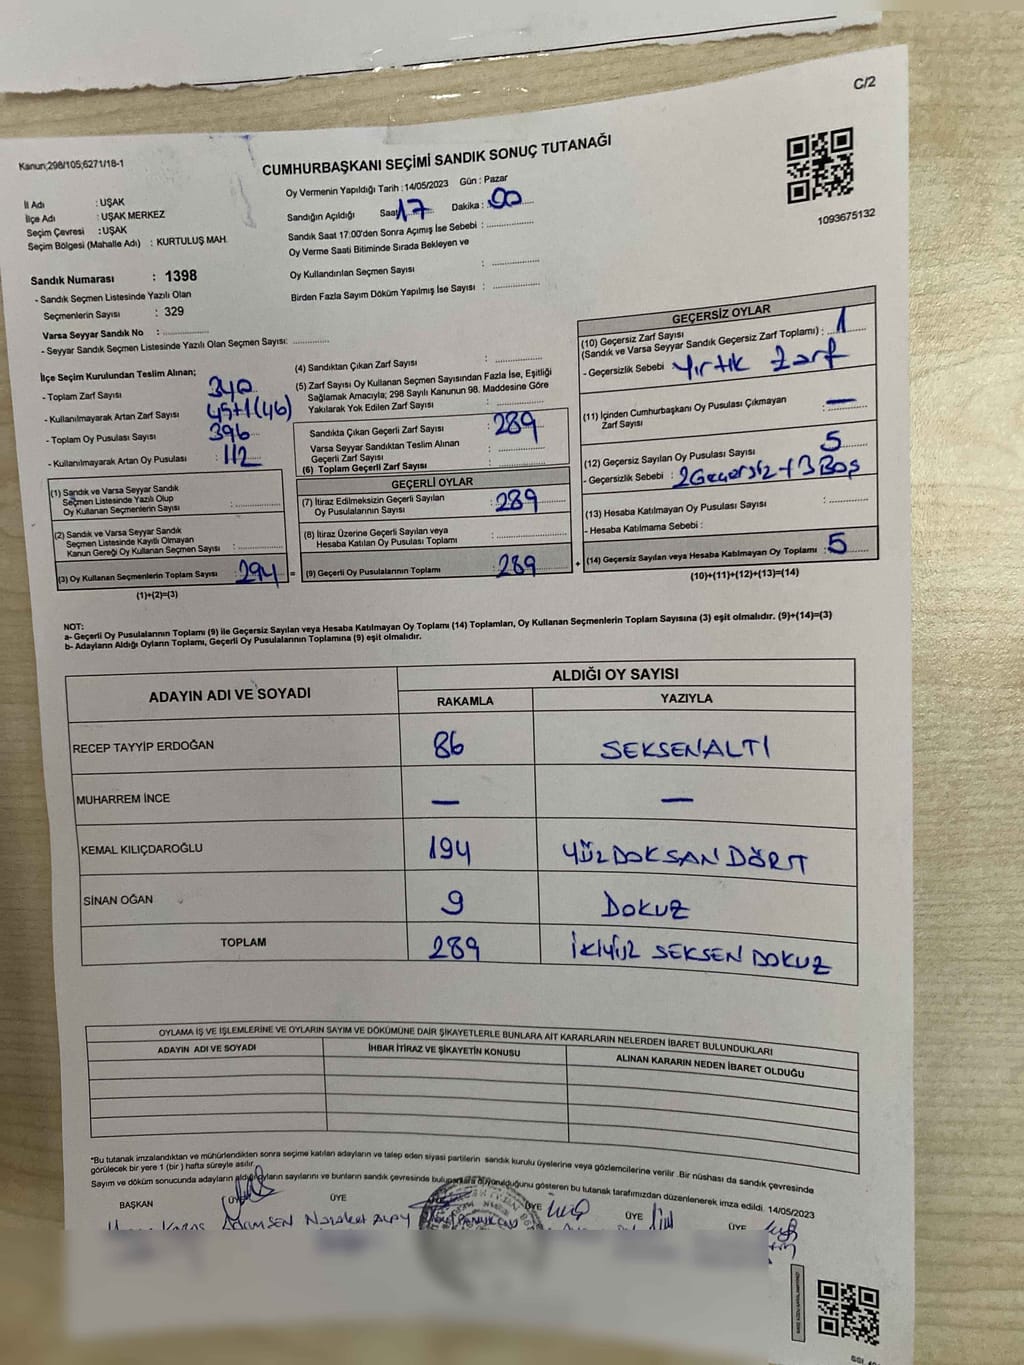 C/2
Kanun;298/105;6271/18-1
CUMHURBAŞKANI SEÇİMİ SANDIK SONUÇ TUTANAĞI
1093675132
İl Adı : UŞAK
İlçe Adı : UŞAK MERKEZ
Seçim Çevresi : UŞAK
Seçim Bölgesi (Mahalle Adı) : KURTULUŞ MAH.
Oy Vermenin Yapıldığı Tarih : 14/05/2023 Gün : Pazar
Sandığın Açıldığı Saat 17 Dakika : 00
Sandık Saat 17:00'den Sonra Açımış İse Sebebi :
Oy Verme Saati Bitiminde Sırada Bekleyen ve
Oy Kullandırılan Seçmen Sayısı :
Birden Fazla Sayım Döküm Yapılmış İse Sayısı :
Sandık Numarası : 1398
- Sandık Seçmen Listesinde Yazılı Olan
Seçmenlerin Sayısı : 329
Varsa Seyyar Sandık No :
- Seyyar Sandık Seçmen Listesinde Yazılı Olan Seçmen Sayısı:
İlçe Seçim Kurulundan Teslim Alınan;
- Toplam Zarf Sayısı 340
- Kullanılmayarak Artan Zarf Sayısı 45+1(46)
- Toplam Oy Pusulası Sayısı : 396
- Kullanılmayarak Artan Oy Pusulası : 112
(1) Sandık ve Varsa Seyyar Sandık
Seçmen Listesinde Yazılı Olup
Oy Kullanan Seçmenlerin Sayısı :
(2) Sandık ve Varsa Seyyar Sandık
Seçmen Listesinde Kayıtlı Olmayan
Kanun Gereği Oy Kullanan Seçmen Sayısı :
(3) Oy Kullanan Seçmenlerin Toplam Sayısı : 294 =
(1)+(2)=(3)
(4) Sandıktan Çıkan Zarf Sayısı :
(5) Zarf Sayısı Oy Kullanan Seçmen Sayısından Fazla İse, Eşitliği
Sağlamak Amacıyla; 298 Sayılı Kanunun 98. Maddesine Göre
Yakılarak Yok Edilen Zarf Sayısı :
Sandıkta Çıkan Geçerli Zarf Sayısı : 289
Varsa Seyyar Sandıktan Teslim Alınan
Geçerli Zarf Sayısı :
(6) Toplam Geçerli Zarf Sayısı :
GEÇERLİ OYLAR
(7) İtiraz Edilmeksizin Geçerli Sayılan
Oy Pusulasının Sayısı : 289
(8) İtiraz Üzerine Geçerli Sayılan veya
Hesaba Katılan Oy Pusulası Toplamı :
(9) Geçerli Oy Pusulalarının Toplamı : 289 +
GEÇERSİZ OYLAR
(10) Geçersiz Zarf Sayısı
(Sandık ve Varsa Seyyar Sandık Geçersiz Zarf Toplamı) : 1
- Geçersizlik Sebebi : Yırtık zarf
(11) İçinden Cumhurbaşkanı Oy Pusulası Çıkmayan
Zarf Sayısı : —
(12) Geçersiz Sayılan Oy Pusulası Sayısı : 5
- Geçersizlik Sebebi : 2 Geçersiz + 3 Boş
(13) Hesaba Katılmayan Oy Pusulası Sayısı :
- Hesaba Katılmama Sebebi :
(14) Geçersiz Sayılan veya Hesaba Katılmayan Oy Toplamı : 5
(10)+(11)+(12)+(13)=(14)
NOT:
a- Geçerli Oy Pusulalarının Toplamı (9) ile Geçersiz Sayılan veya Hesaba Katılmayan Oy Toplamı (14) Toplamları, Oy Kullanan Seçmenlerin Toplam Sayısına (3) eşit olmalıdır. (9)+(14)=(3)
b- Adayların Aldığı Oyların Toplamı, Geçerli Oy Pusulalarının Toplamına (9) eşit olmalıdır.
ADAYIN ADI VE SOYADI ALDIĞI OY SAYISI
RAKAMLA YAZIYLA
RECEP TAYYİP ERDOĞAN 86 SEKSENALTI
MUHARREM İNCE — —
KEMAL KILIÇDAROĞLU 194 YÜZDOKSANDÖRT
SİNAN OĞAN 9 DOKUZ
TOPLAM 289 İKİYÜZ SEKSEN DOKUZ
OYLAMA İŞ VE İŞLEMLERİNE VE OYLARIN SAYIM VE DÖKÜMÜNE DAİR ŞİKAYETLERLE BUNLARA AİT KARARLARIN NELERDEN İBARET BULUNDUKLARI
ADAYIN ADI VE SOYADI İHBAR İTİRAZ VE ŞİKAYETİN KONUSU ALINAN KARARIN NEDEN İBARET OLDUĞU
*Bu tutanak imzalandıktan ve mühürlendikten sonra seçime katılan adayların ve talep eden siyasi partilerin sandık kurulu üyelerine veya gözlemcilerine verilir .Bir nüshası da sandık çevresinde
görülecek bir yere 1 (bir ) hafta süreyle asılır.
Sayım ve döküm sonucunda adayların aldığı oyların sayılarını ve bunların sandık çevresinde bulunduğunu gösteren bu tutanak tarafımızdan düzenlenerek imza edildi. 14/05/2023
BAŞKAN ÜYE ÜYE ÜYE ÜYE